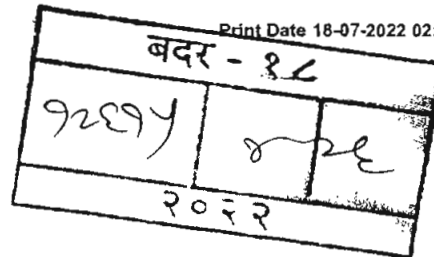 Print Date 18-07-2022 02:
बदर - १८
१२६१५ ४ २६
२०२२